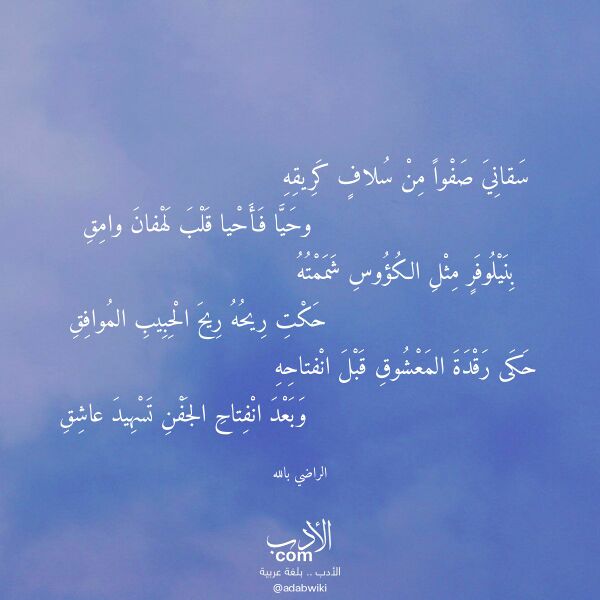 سَقانِيَ صَفْواً مِنْ سُلافٍ كَرِيقِهِ
وحَيَّا فَأَحْيا قَلْبَ لَهْفانَ وامِقِ
بِنَيْلُوفَرٍ مِثْلِ الكُؤُوسِ شَمَمْتُهُ
حَكَتِْ رِيحُهُ رِيحَ الْحَبِيبِ المُوافِقِ
حَكَى رَقْدَةَ المَعْشُوقِ قَبْلَ انْفتاحِهِ
وَبَعْدَ انْفِتاحِ الجَفْنِ تَسْهِيدَ عاشِقِ
الراضي بالله
الأدب
com
الأدب .. بلغة عربية
@adabwiki